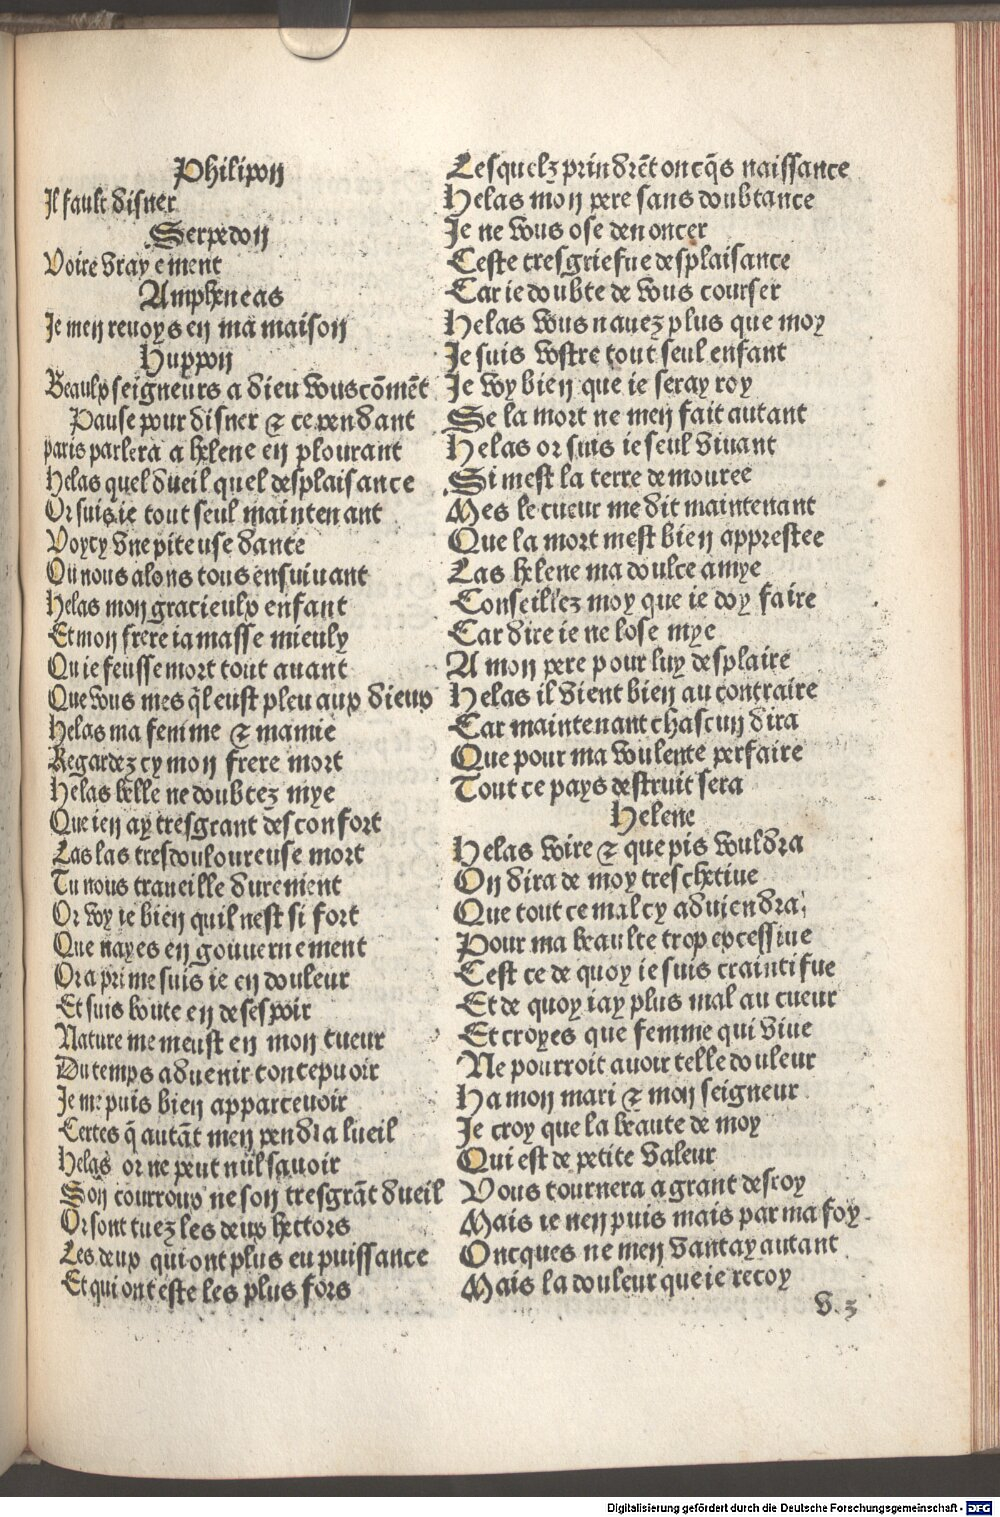 Philipon
Il fault disner
Serpedon
Voire vrayement
Ampheneas
Je men revoys en ma maison
Huppon
Beaulx seigneurs a dieu vous cõmẽt
Pause pour disner & ce pendant
paris parlera a helene en plourant
Helas quel dueil quel desplaisance
Or suis ie tout seul maintenant
Voycy vne piteuse dance
Ou nous alons tous ensuiuant
Helas mon gracieulx enfant
Et mon frere iamasse mieulx
Qu ie feusse mort tout auant
Que vous mes q̃l eust pleu aux dieux
Helas ma femme & mamie
Regardez cy mon frere mort
Helas belle ne doubtez mye
Que ien ay tresgrant desconfort
Las las tresdouloureuse mort
Tu nous traueille durement
Or voy ie bien quil nest si fort
Que nayes en gouuernement
Or a prime suis ie en douleur
Et suis boute en desespoir
Nature me meust en mon cueur
Du temps aduenir concepuoir
Je me puis bien apparcevoir
Certes q̃ autãt men pendra lueil
Helas or ne peut nul sauoir
Son courroux ne son tresgrãt dueil
Or sont tuez les deux hectors
Les deux qui ont plus eu puissance
Et qui ont este les plus fors
Lesquelz prindrẽt oncq̃s naissance
Helas mon pere sans doubtance
Je ne vous ose denoncer
Ceste tresgriefue desplaisance
Car ie doubte de vous courser
Helas vous nauez plus que moy
Je suis vostre tout seul enfant
Je voy bien que ie seray roy
Se la mort ne men fait autant
Helas or suis ie seul viuant
Si mest la terre demouree
Mes le cueur me dit maintenant
Que la mort mest bien apprestee
Las helene ma doulce amye
Conseillez moy que ie doy faire
Car dire ie ne lose mye
A mon pere pour luy desplaire
Helas il vient bien au contraire
Car maintenant chascun dira
Que pour ma voulente perfaire
Tout ce pays destruit sera
Helene
Helas voire & que pis vouldra
On dira de moy treschetiue
Que tout ce mal cy aduiendra
Pour ma beaulte trop excessiue
Cest ce de quoy ie suis craintifue
Et de quoy iay plus mal au cueur
Et croyes que femme qui viue
Ne pourroit auoir telle douleur
Ha mon mari & mon seigneur
Je croy que la beaute de moy
Qui est de petite valeur
Vous tournera a grant desroy
Mais ie nen puis mais par ma foy
Oncques ne men vantay autant
Mais la douleur que ie recoy
v. 3
Digitalisierung gefördert durch die Deutsche Forschungsgemeinschaft - DFG